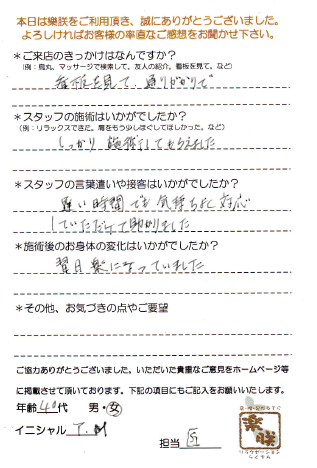 本日は樂咲をご利用頂き、誠にありがとうございました。
よろしければお客様の率直なご感想をお聞かせ下さい。
*ご来店のきっかけはなんですか?
(例:烏丸、マッサージで検索して、友人の紹介。看板を見て。など)
看板を見て、通りがかりで
*スタッフの施術はいかがでしたか?
(例:リラックスできた。肩をもう少しほぐしてほしかった。など)
しっかり 施術してもらえました
*スタッフの言葉遣いや接客はいかがでしたか?
遅い時間でも気持ちよく対応
していただけて助かりました
*施術後のお身体の変化はいかがでしたか?
翌日楽になっていました
*その他、お気づきの点やご要望
ご協力ありがとうございました。いただいた貴重なご意見をホームページ等
に掲載させて頂いております。下記の項目にもご記入をお願いいたします。
年齢 40代 男・女
イニシャル T.M
担当
樂咲
リラクゼーション
らくさく